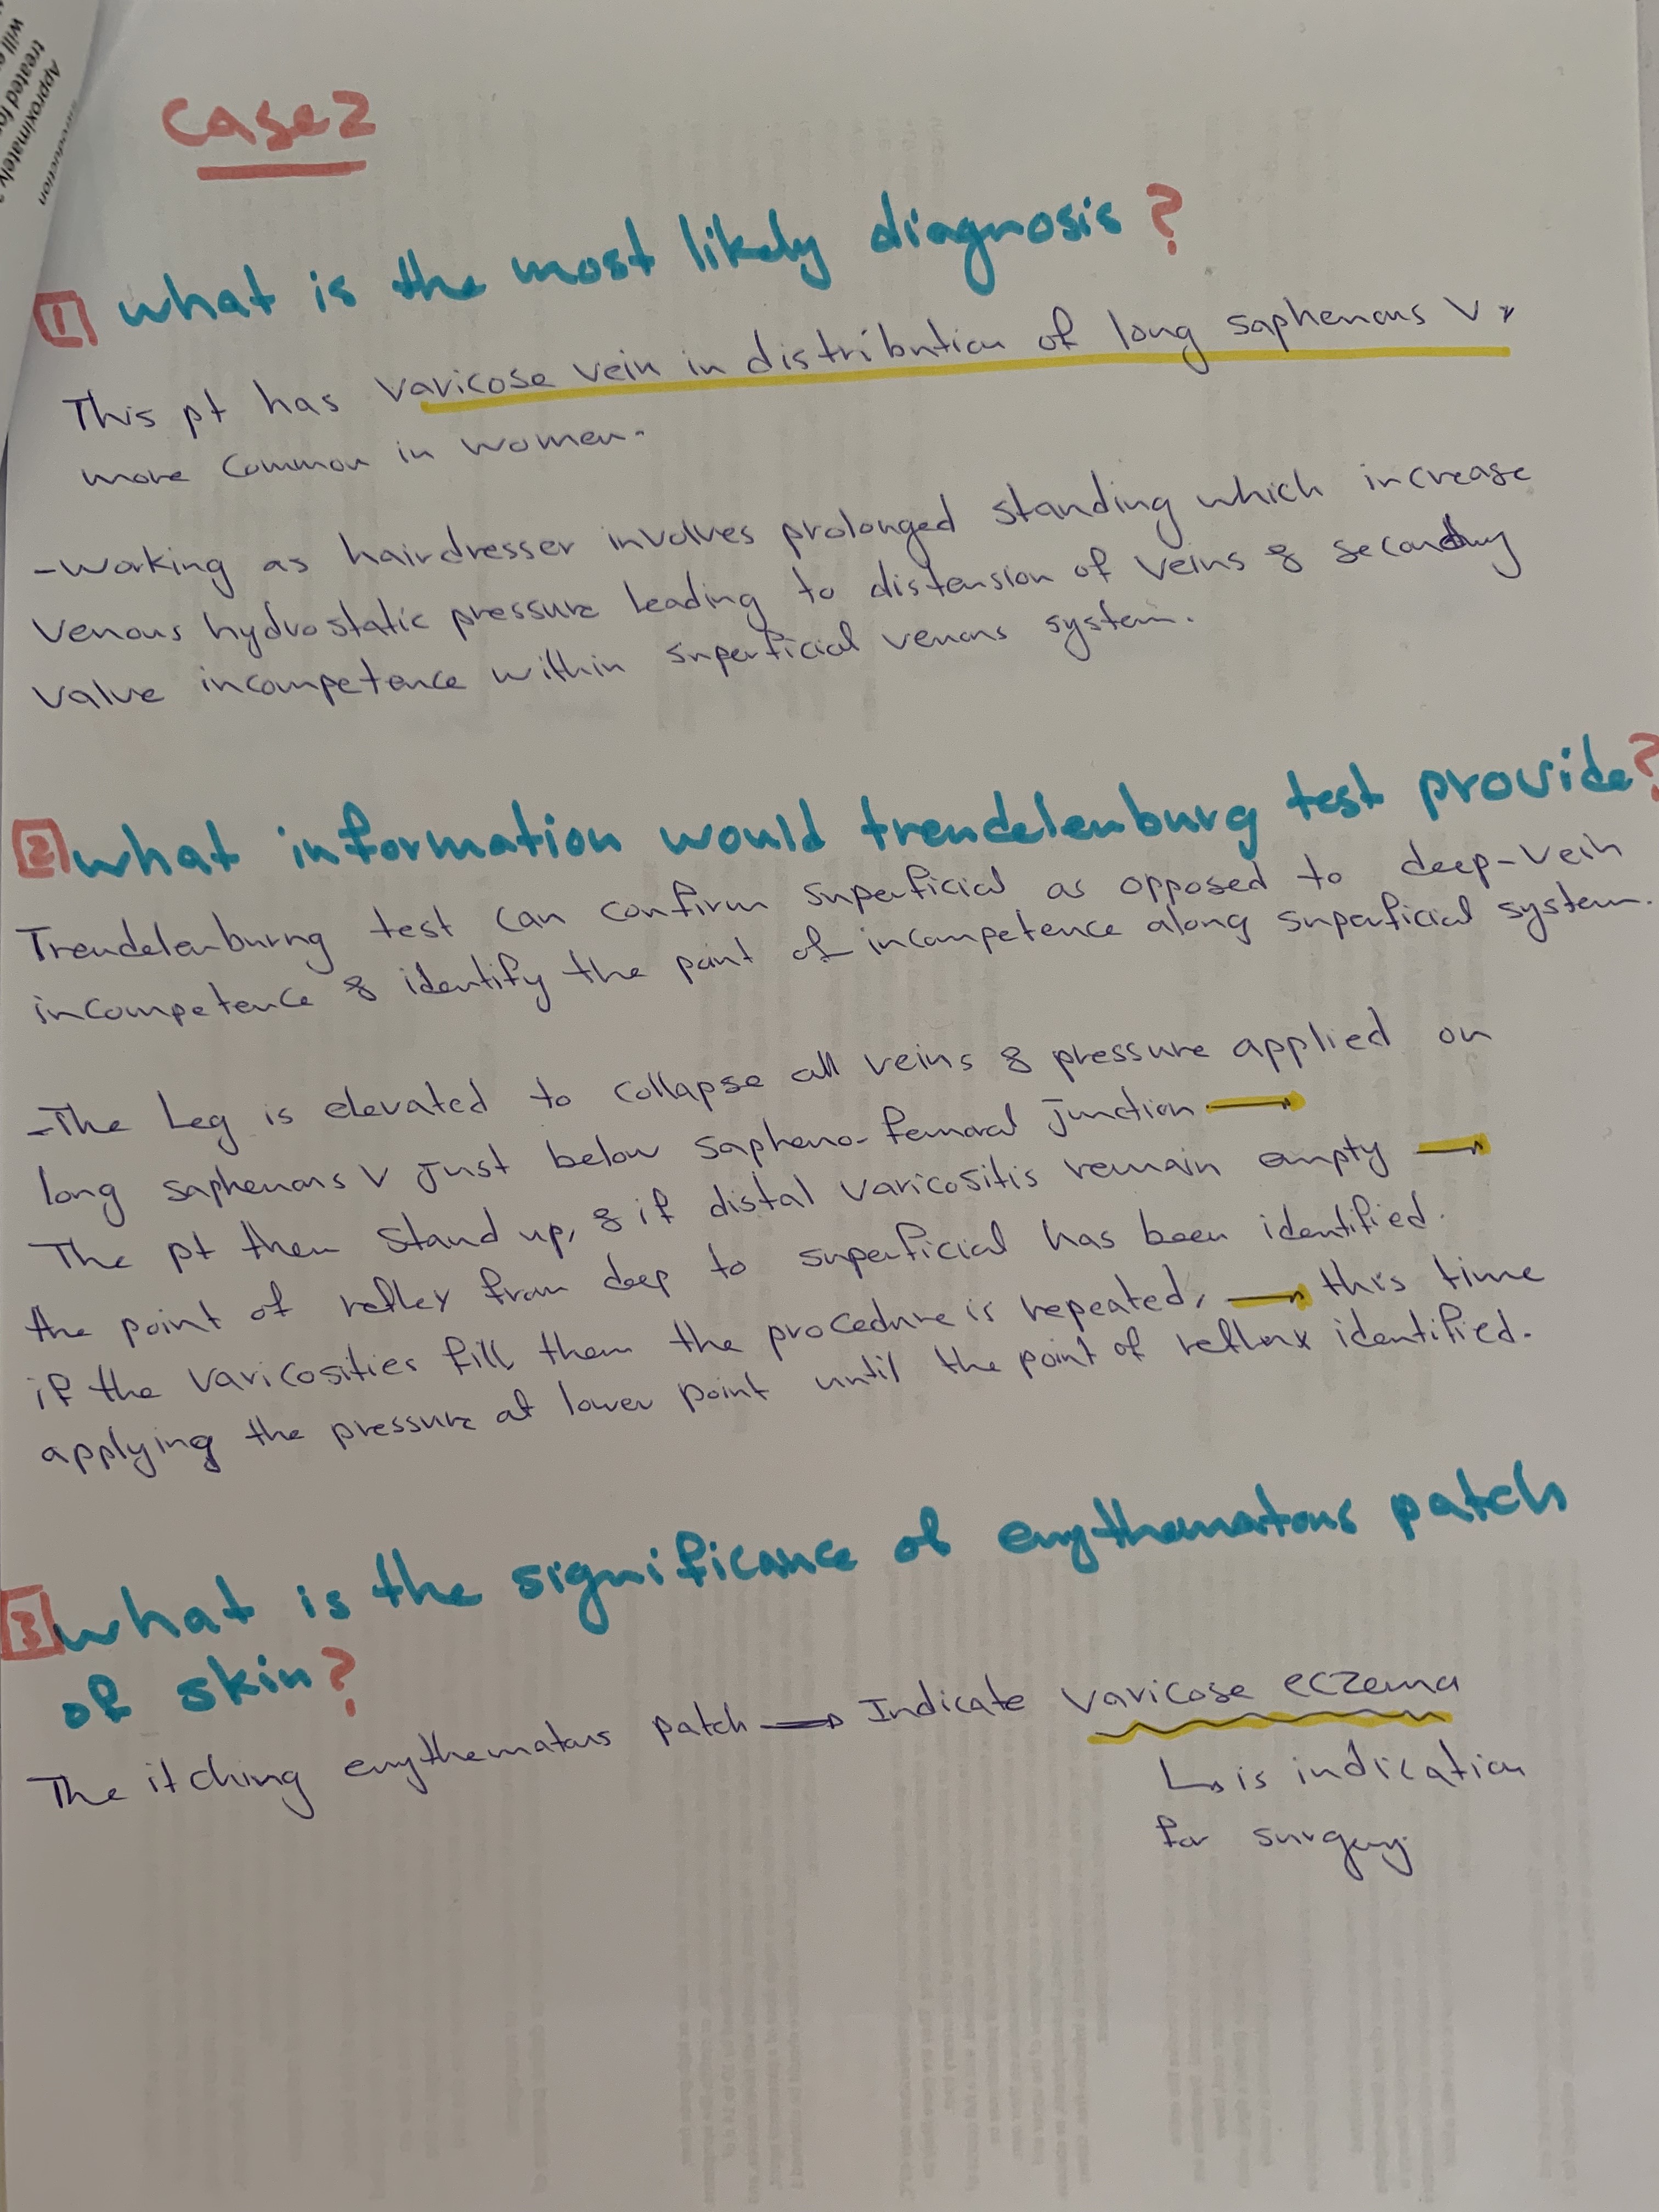 Introduction
Approximately
treated for
will
Case 2
1 What is the most likely diagnosis?
This pt has varicose vein in distribution of long saphenous V,
more common in women.
-Working as hairdresser involves prolonged standing which increase
venous hydrostatic pressure leading to distension of veins & secondry
valve incompetence within superficial venous system.
2 What information would trendelenburg test provide?
Trendelenburng test can confirm superficial as opposed to deep-vein
incompetence & identify the point of incompetence along superficial system.
-The Leg is elevated to collapse all veins & pressure applied on
long saphenous V Just below sapheno-femoral junction →
The pt then stand up, & if distal varicositis remain empty →
the point of reflex from deep to superficial has been identified.
if the varicosities fill them the procedure is repeated, → this time
applying the pressure at lower point until the point of reflux identified.
3 What is the significance of erythematous patch
of skin?
The itching erythematous patch → Indicate varicose eczema
↳ is indication
for surgery.